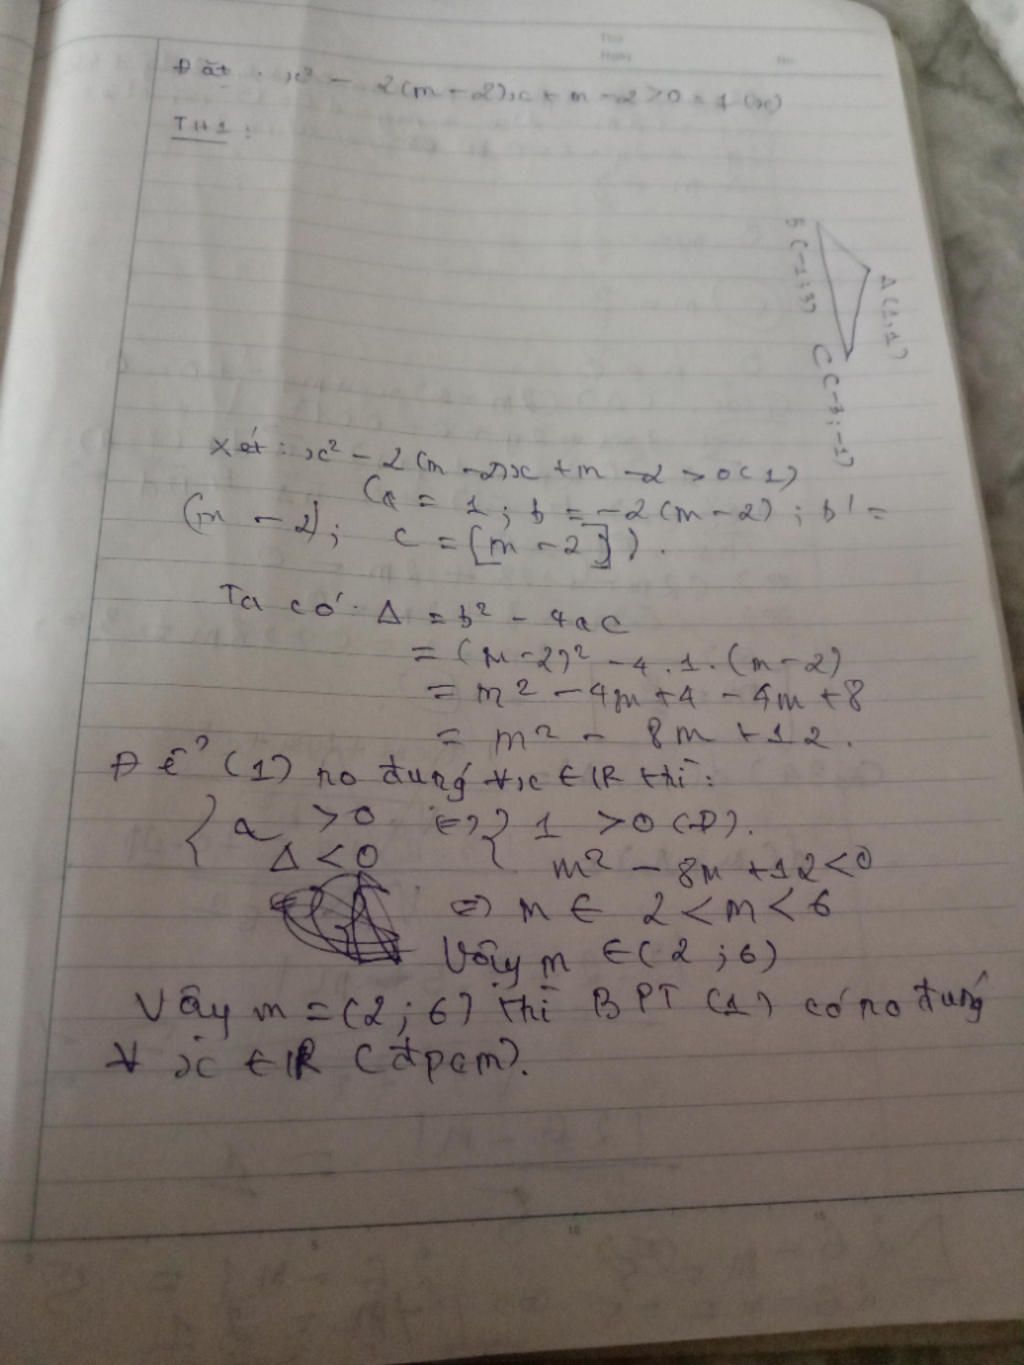 Đặt: x² - 2(m-2)x + m - 2 > 0 = 1 (x)
TH1:
B(-1;3)
A(1,1)
C(-3;-1)
Xét: x² - 2(m-2)x + m - 2 > 0 (1)
(a = 1; b = -2(m-2); b' =
(m - 2); c = [m - 2]).
Ta có: Δ = b² - 4ac
= (m-2)² - 4.1.(m-2)
= m² - 4m + 4 - 4m + 8
= m² - 8m + 12.
Để (1) no đúng ∀x ∈ IR thì:
{ a > 0 ⇔ { 1 > 0 (Đ).
Δ < 0 m² - 8m + 12 < 0
⇔ m ∈ 2 < m < 6
Vậy m ∈ (2;6)
Vậy m = (2;6) thì BPT (1) có no đúng
∀ x ∈ IR (đpcm).
5 10 15